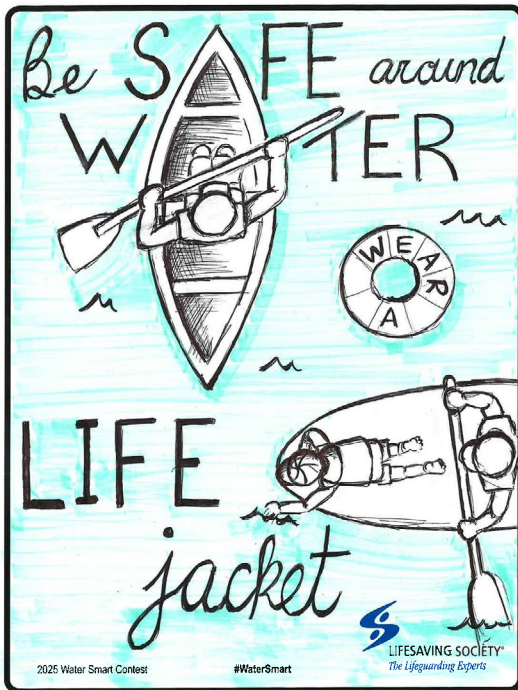 Be SAFE around
WATER
WEAR
A
LIFE
jacket
LIFESAVING SOCIETY®
The Lifeguarding Experts
2025 Water Smart Contest
#WaterSmart